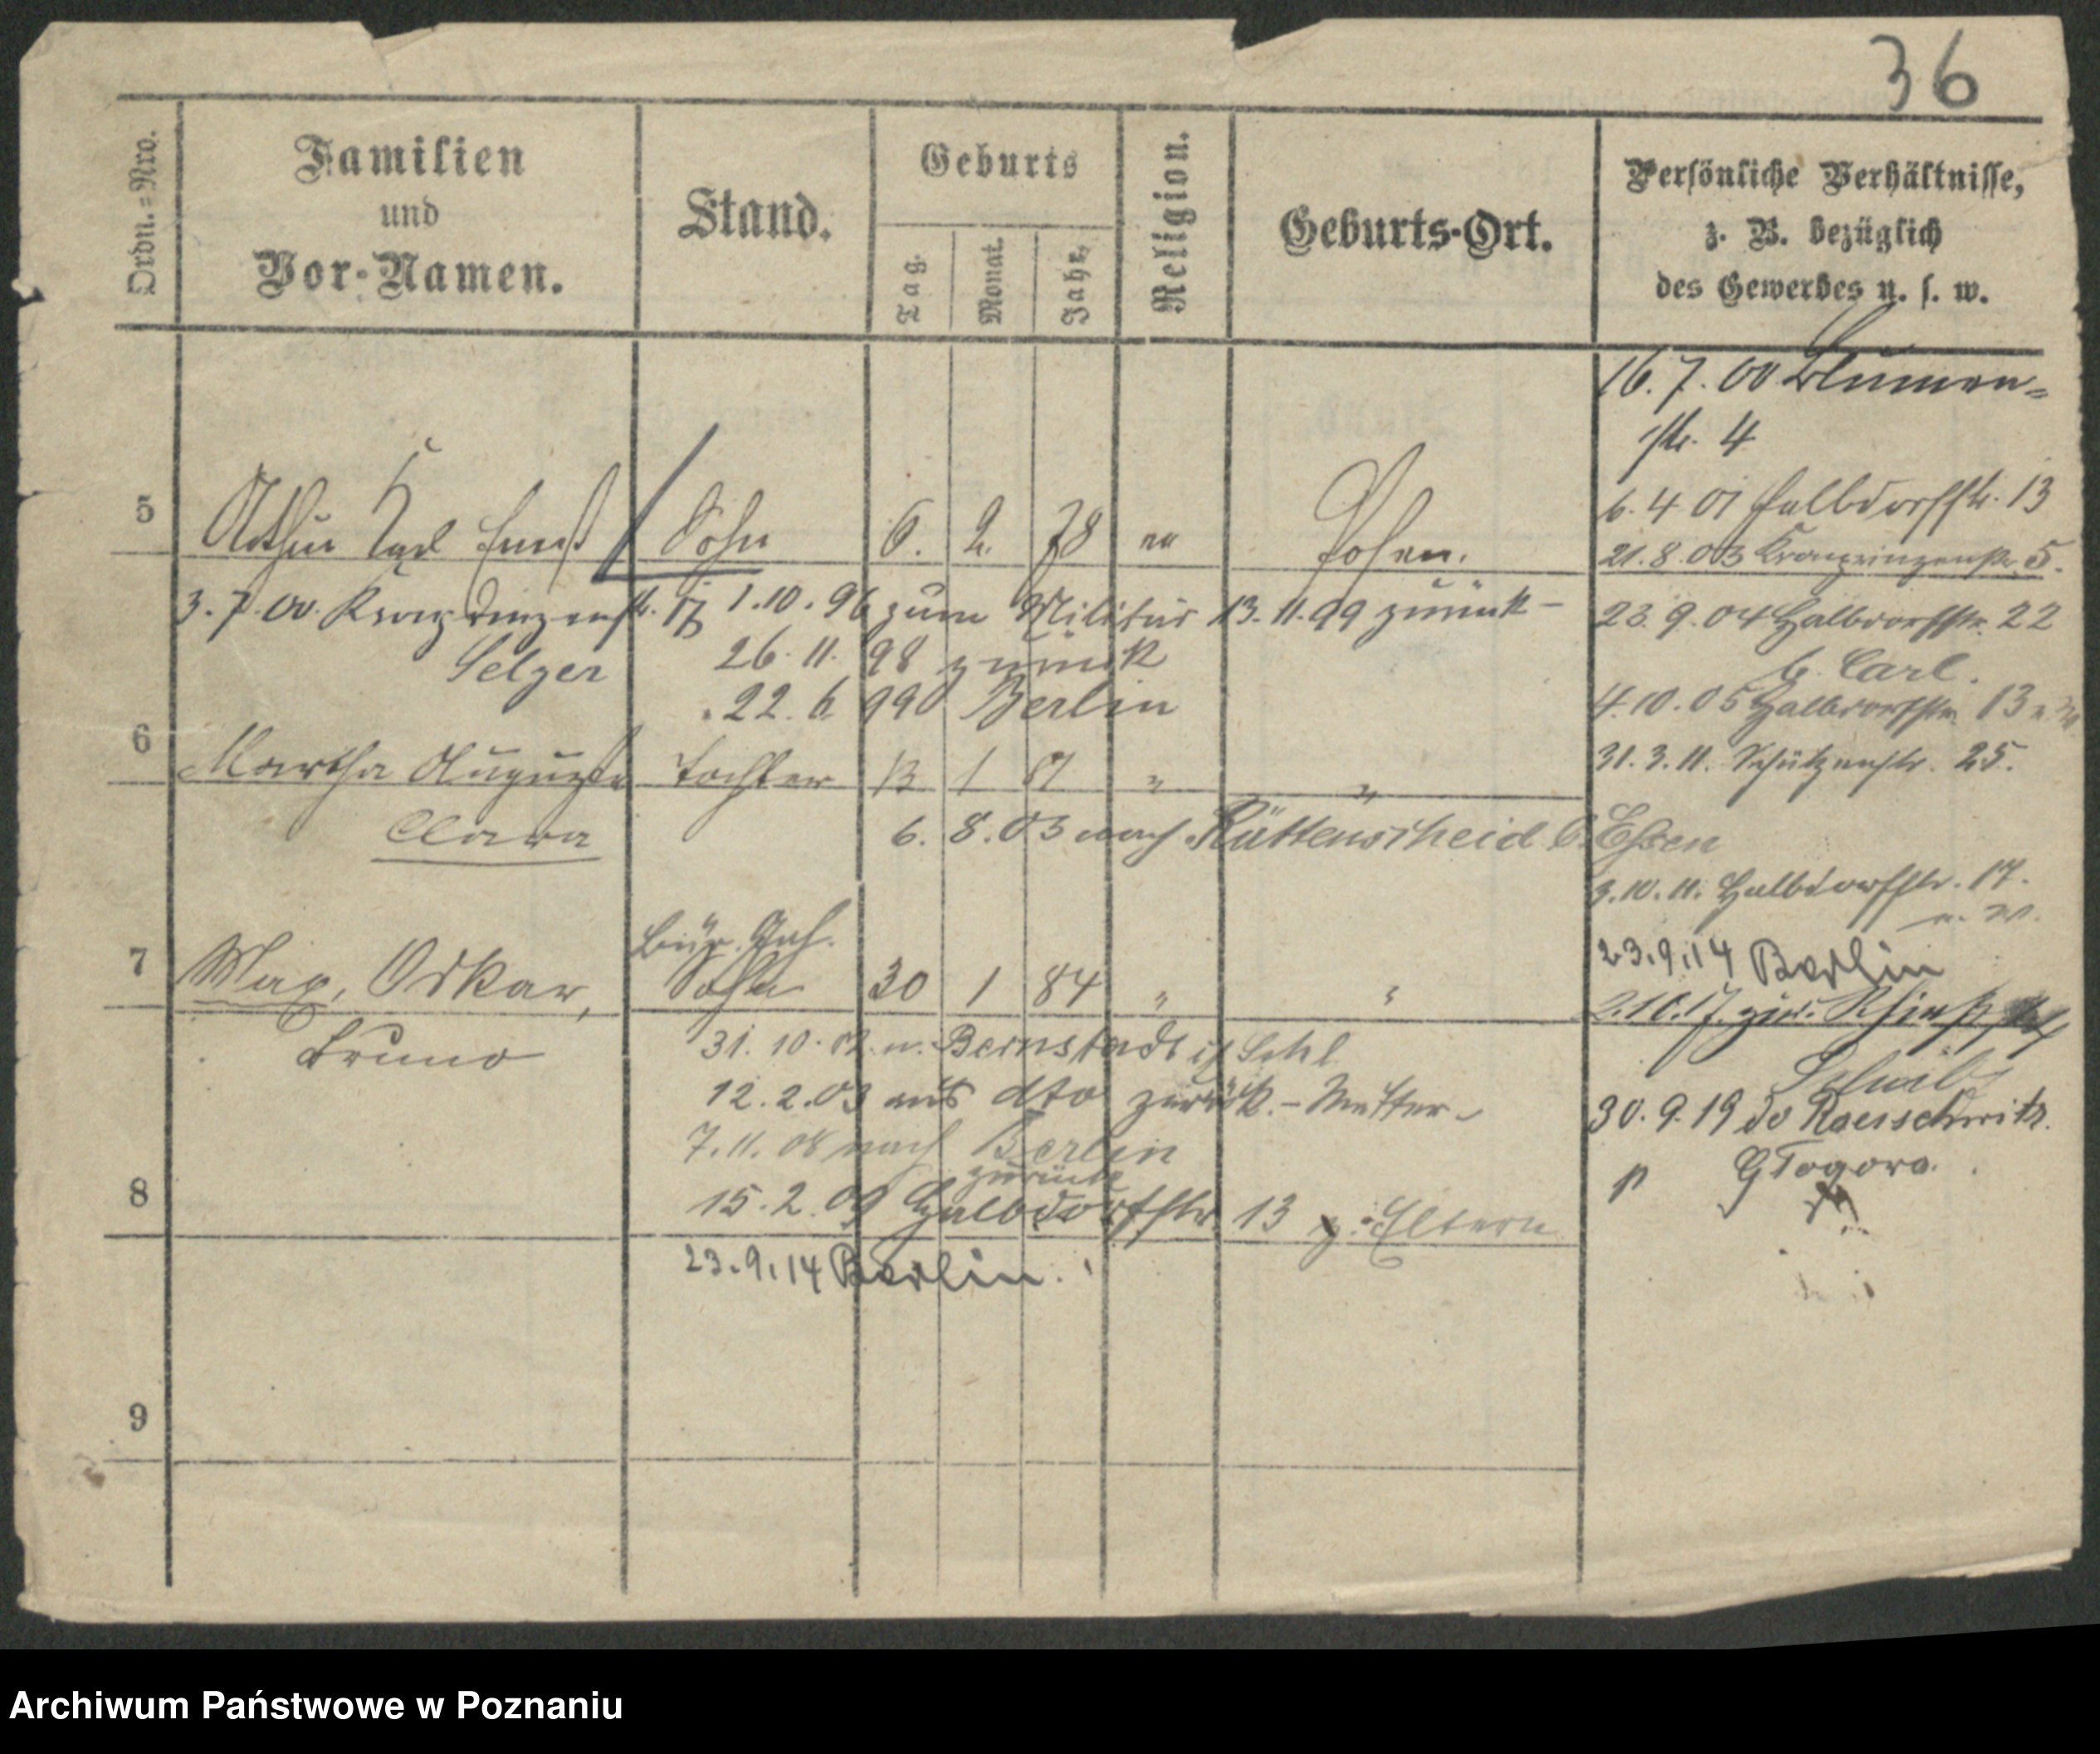 36
Ordn.=Nro.
Familien
und
Vor-Namen.
Stand.
Geburts
Tag.
Monat.
Jahr.
Religion.
Geburts-Ort.
Persönliche Verhältnisse,
z. B. bezüglich
des Gewerbes u. s. w.
16. 7. 00 Blumen=
str. 4
6. 4 01 Halbdorfstr. 13
5 Arthur Carl Ernst Sohn 6. 2. 78 Posen.
21. 8. 03 Kronprinzenstr. 5.
3. 7. 00. Kronprinzenstr. 1.10.96 zum Militär 13.11.99 zurück-
23. 9. 04 Halbdorfstr. 22
Selger 26. 11. 98 zurück
b. Carl.
22. 6 990 Berlin
4. 10. 05 Halbdorfstr. 13
6 Martha Auguste Tochter 13 1 81 " "
31. 3. 11. Schützenstr. 25.
Clara 6. 8. 03 nach Rüttenscheid b. Essen
3. 10. 11. Halbdorfstr. 17.
7 Max, Oskar, Sohn 30 1 84 " "
23.9.14 Berlin
2.10.17. zur.
Bruno 31. 10. 02. n. Bernstadt i/ Schl
12. 2. 03 aus dto zurück. - Mutter -
30. 9. 19 do
7. 11. 08 nach Berlin
zurück
8 15. 2. 09 Halbdorfstr. 13 z. Eltern
23.9.14 Berlin.
9
Archiwum Państwowe w Poznaniu